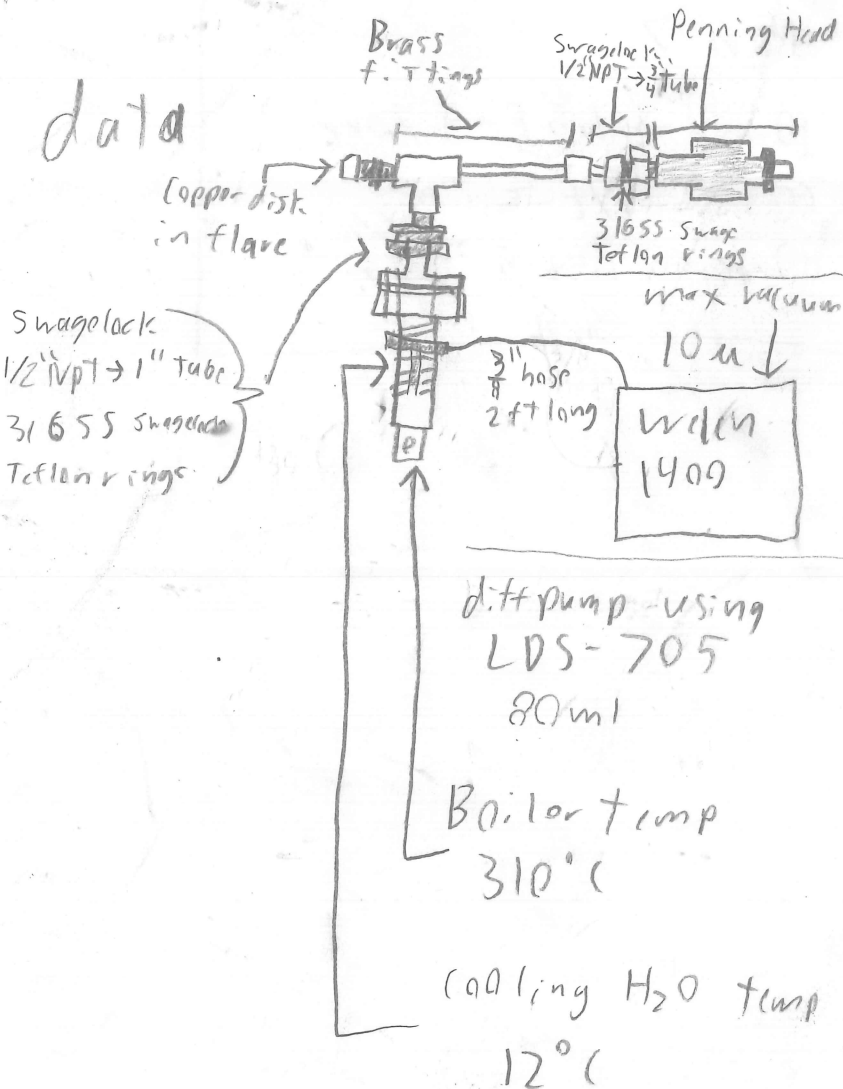 data
Brass
fittings
Swagelock
1/2" NPT → 3/4" tube
Penning Head
Copper disk
in flare
316SS Swage
Teflon rings
max vacuum
10 u
Swagelock
1/2" NPT → 1" tube
316SS Swagelock
Teflon rings
3/8" hose
2 ft long
welch
1400
diff pump using
LDS-705
80ml
Boiler temp
310°C
cooling H2O temp
12°C